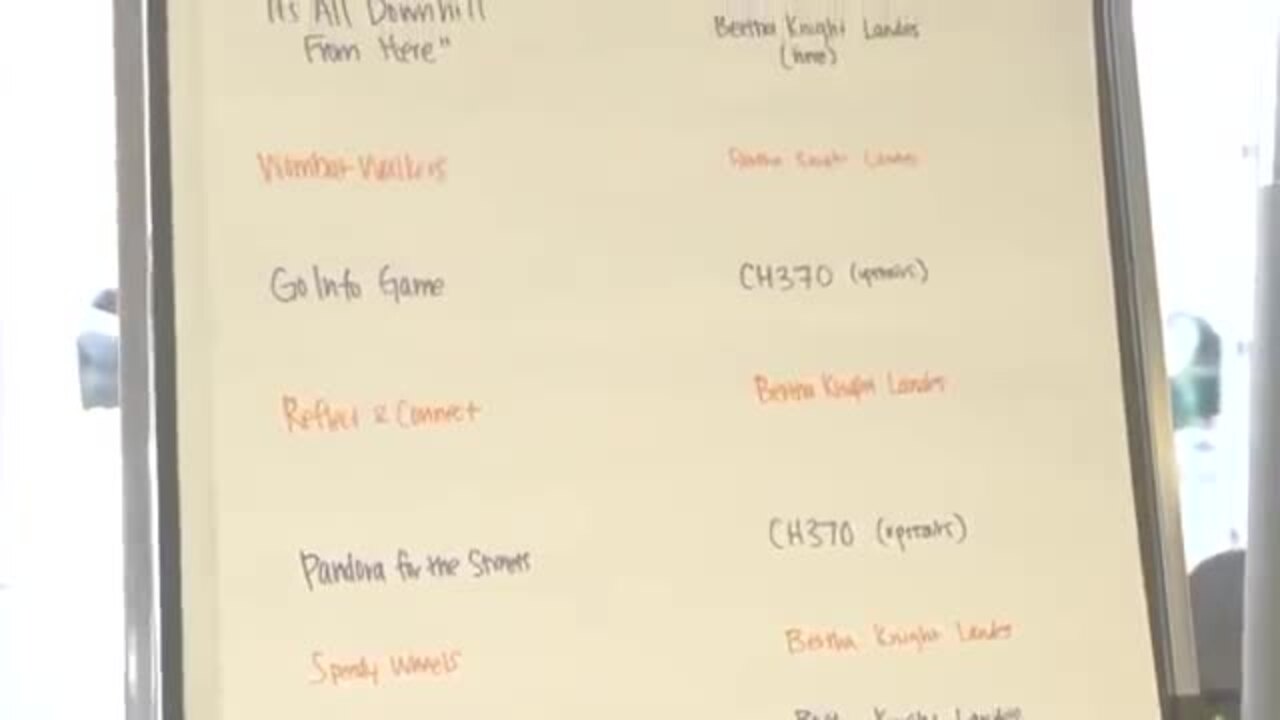 Its All Downhill
From Here"
Bertha Knight Landes
(here)
Wombat Walkers
Bertha Knight Landes
Go Info Game
CH370 (upstairs)
Reflect & Connect
Bertha Knight Landes
Pandora for the Streets
CH370 (upstairs)
Speedy Wheels
Bertha Knight Landes
Knight Landes